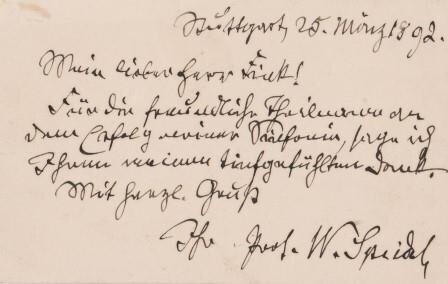 Stuttgart, 25. März 1892.
Mein lieber Herr Fink!
Für die freundliche Theilname an
dem Erfolg meiner Sinfonie, sage ich
Ihnen meinen tiefgefühlten Dank.
Mit herzl. Gruß
Ihr Prof. W. Speidel